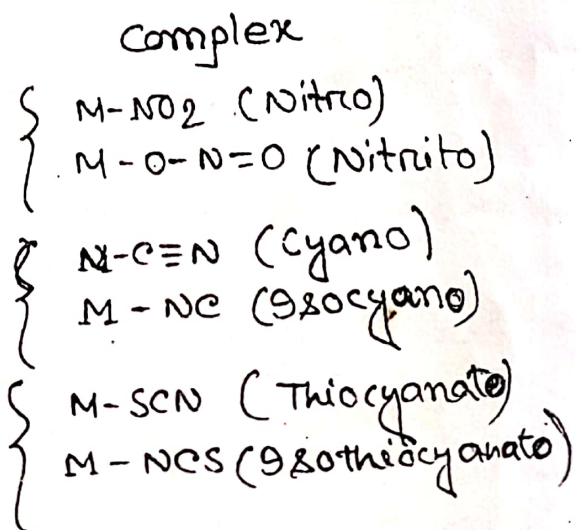 Complex
M-NO2 (Nitro)
M-O-N=O (Nitrito)
M-C≡N (Cyano)
M-NC (Isocyano)
M-SCN (Thiocyanato)
M-NCS (Isothiocyanato)